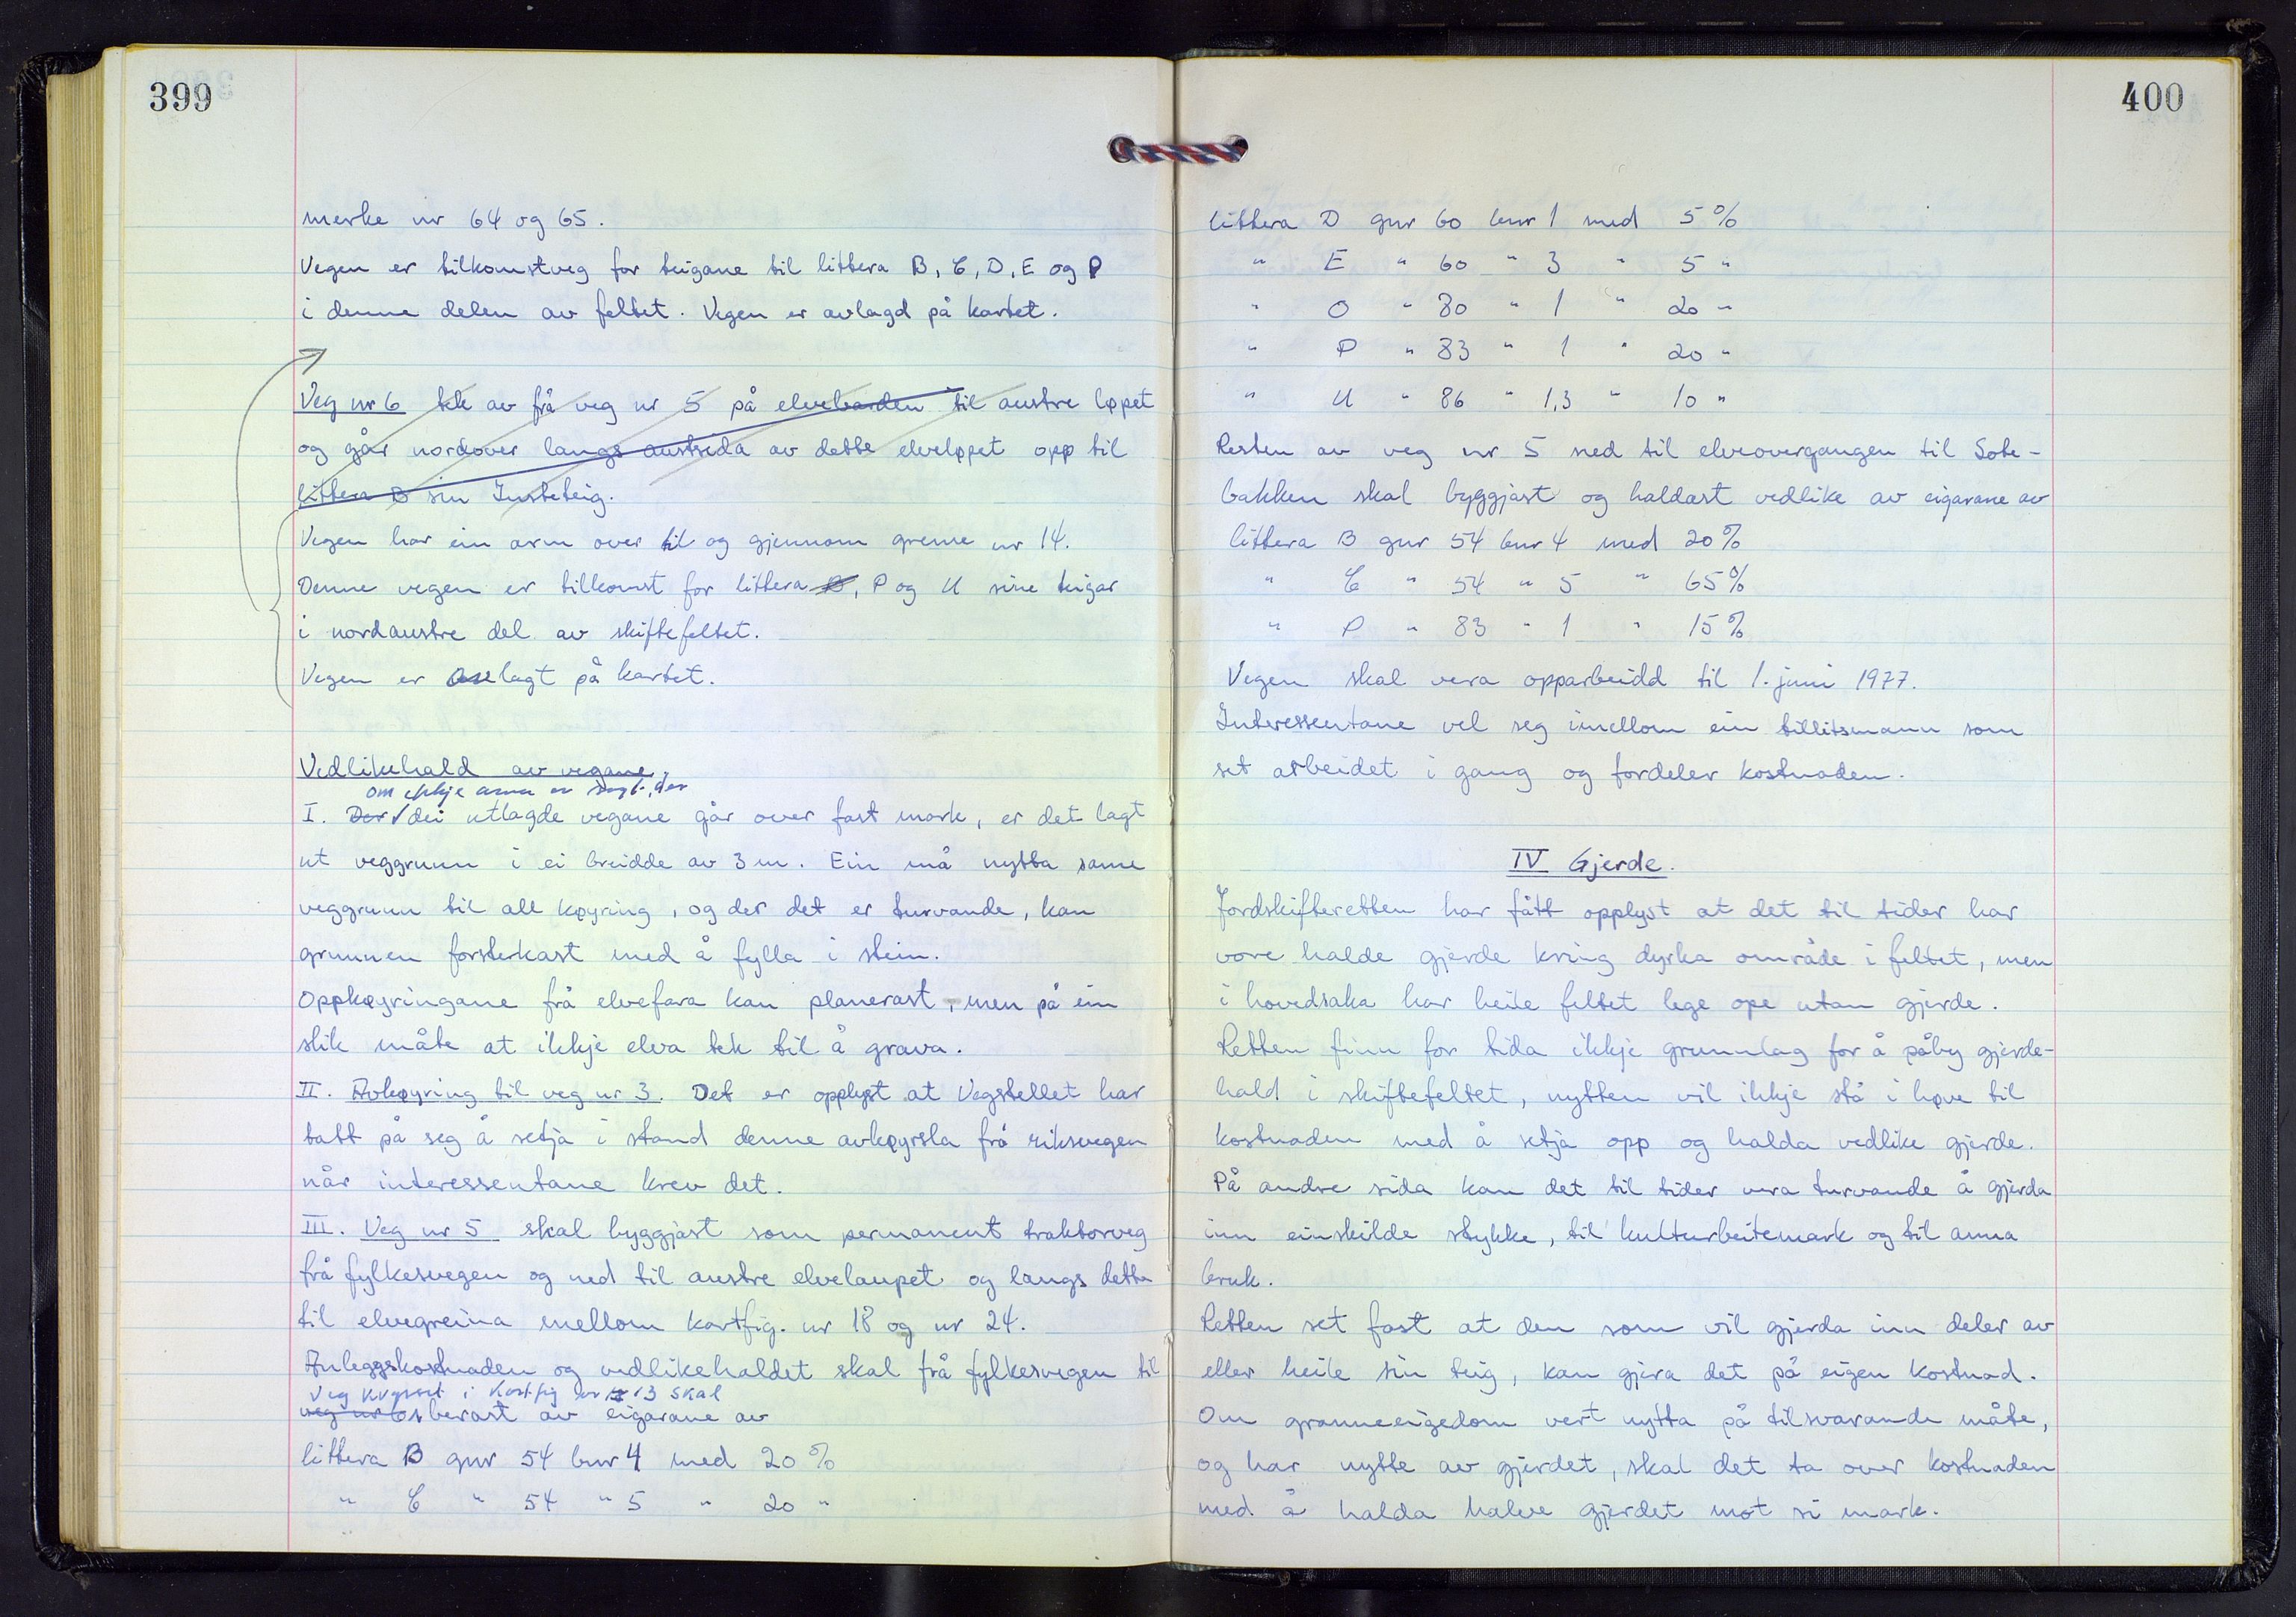 399
merke nr 64 og 65.
Vegen er tilkomstveg for teigane til littera B, C, D, E og P
i denne delen av feltet. Vegen er avlagd på kartet.
Veg nr 6 tek av frå veg nr 5 på elvebarden til austre løpet
og går nordover langs austsida av dette elveløpet opp til
littera B sin Insteteig.
Vegen har ein arm over til og gjennom greine nr 14.
Denne vegen er tilkomst for littera B, P og U sine teigar
i nordaustre del av skiftefeltet.
Vegen er avlagt på kartet.
Vedlikehald av vegane.
om ikkje anna er sagt, der
I. Der dei utlagde vegane går over fast mark, er det lagt
ut veggrunn i ei breidde av 3 m. Ein må nytta same
veggrunn til all køyring, og der det er turvande, kan
grunnen forsterkast med å fylla i stein.
Oppkøyringane frå elvefara kan planerast, men på ein
slik måte at ikkje elva tek til å grava.
II. Avkøyring til veg nr 3. Det er opplyst at Vegstellet har
tatt på seg å setja i stand denne avkøyrsla frå riksvegen
når interessentane krev det.
III. Veg nr 5 skal byggjast som permanent traktorveg
frå fylkesvegen og ned til austre elvelaupet og langs dette
til elvegreina mellom kartfig. nr 18 og nr 24.
Anleggskostnaden og vedlikehaldet skal frå fylkesvegen til
veg kryset i kartfig nr 13 skal
veg nr 6 berast av eigarane av
littera B gnr 54 bnr 4 med 20 %
" C " 54 " 5 " 20 "
400
littera D gnr 60 bnr 1 med 5 %
" E " 60 " 3 " 5 "
" O " 80 " 1 " 20 "
" P " 83 " 1 " 20 "
" U " 86 " 1,3 " 10 "
Resten av veg nr 5 ned til elveovergangen til Sote-
bakken skal byggjast og haldast vedlike av eigarane av
littera B gnr 54 bnr 4 med 20 %
" C " 54 " 5 " 65 %
" P " 83 " 1 " 15 %
Vegen skal vera opparbeidd til 1. juni 1977.
Interessentane vel seg imellom ein tillitsmann som
set arbeidet i gang og fordeler kostnaden.
IV Gjerde.
Jordskifteretten har fått opplyst at det til tider har
vore halde gjerde kring dyrka område i feltet, men
i hovedsaka har heile feltet lege ope utan gjerde.
Retten finn for tida ikkje grunnlag for å påby gjerde-
hald i skiftefeltet, nytten vil ikkje stå i høve til
kostnaden med å setja opp og halda vedlike gjerde.
På andre sida kan det til tider vera turvande å gjerda
inn einskilde stykke, til kulturbeitemark og til anna
bruk.
Retten set fast at den som vil gjerda inn deler av
eller heile sin teig, kan gjera det på eigen kostnad.
Om granneeigedom vert nytta på tilsvarande måte,
og har nytte av gjerdet, skal det ta over kostnaden
med å halda halve gjerdet mot si mark.